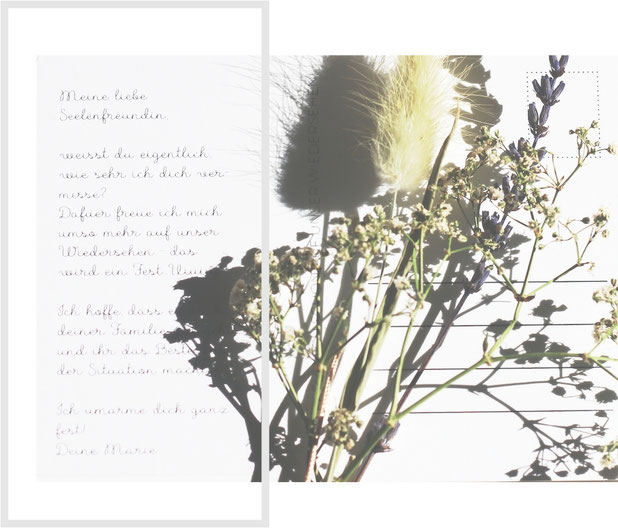 Meine liebe
Seelenfreundin,
weisst du eigentlich,
wie sehr ich dich ver-
misse?
Dafuer freue ich mich
umso mehr auf unser
Wiedersehen - das
wird ein Fest
Ich hoffe dass
deiner Familie
und ihr das
der Situation
Ich umarme dich ganz
fest!
Deine Marie
WIEDERSEHEN